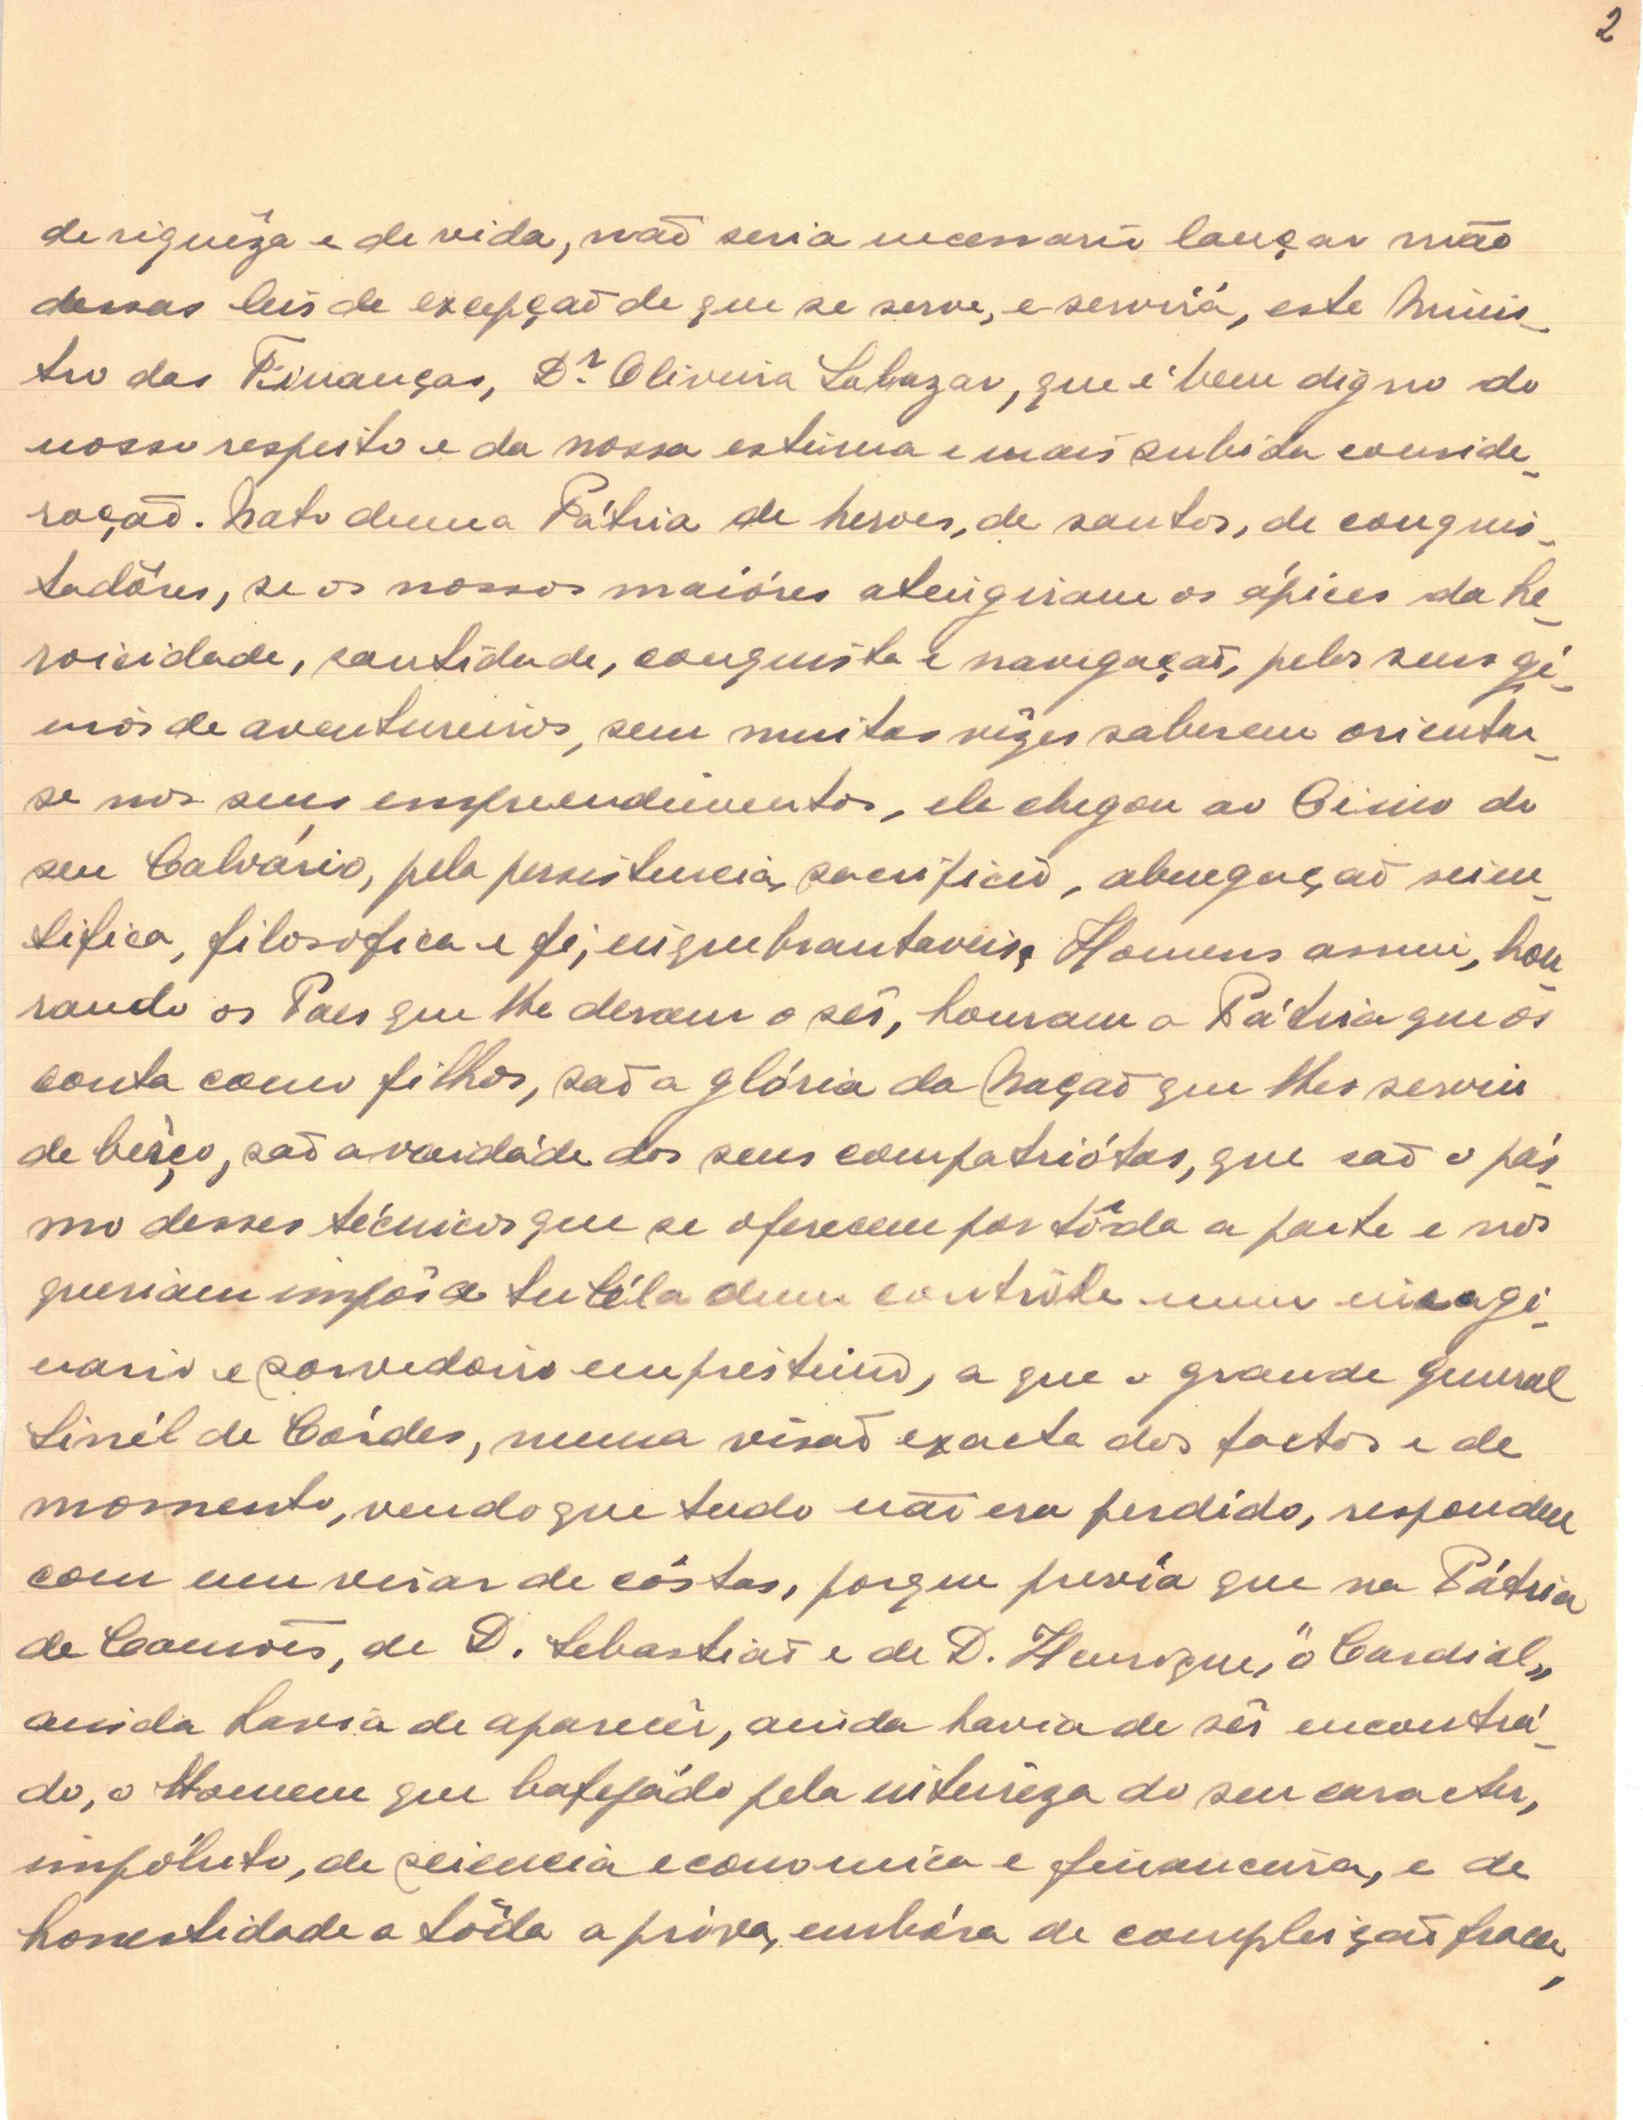 2
de riquêza e de vida, não seria necessario lançar mão
dessas leis de excepção de que se serve, e servirá, este Minis-
tro das Finanças, Dr. Oliveira Salazar, que é bem digno do
nosso respeito e da nossa estima e mais subida conside-
ração. Nato duma Pátria de heroes, de santos, de conquis-
tadôres, se os nossos maióres atengiram os ápices da he-
roicidade, santidade, conquista e navegação, pelos seus gé-
nios de aventureiros, sem muitas vêzes saberem orientar-
se nos seus empreendimentos, ele chegou ao Cimo do
seu Calvário, pela persistencia, sacrificio, abnegação scien-
tifica, filosofica e fé, inquebrantaveis. Homens assim, hon-
rando os Paes que lhe deram o sêr, honram a Pátria que os
conta como filhos, são a glória da Nação que lhes serviu
de bêrço, são a vaidáde dos seus compatriótas, que são o pás-
mo desses técnicos que se oferecem por tôda a parte e nos
queriam impôr a tutéla dum contrôle num imagi-
nario e sorvedoiro emprestimo, a que o grande General
Sinél de Córdes, numa visão exacta dos factos e de
momento, vendo que tudo não era perdido, respondeu
com um virar de cóstas, porque previa que na Pátria
de Camões, de D. Sebastião e de D. Henrique, "o Cardial"
ainda havia de aparecêr, ainda havia de sêr encontrá-
do, o Homem que bafejádo pela intereza do seu caracter,
impóluto, de sciencia economica e financeira, e de
honestidade a tôda a próva, embóra de compleição fraca,